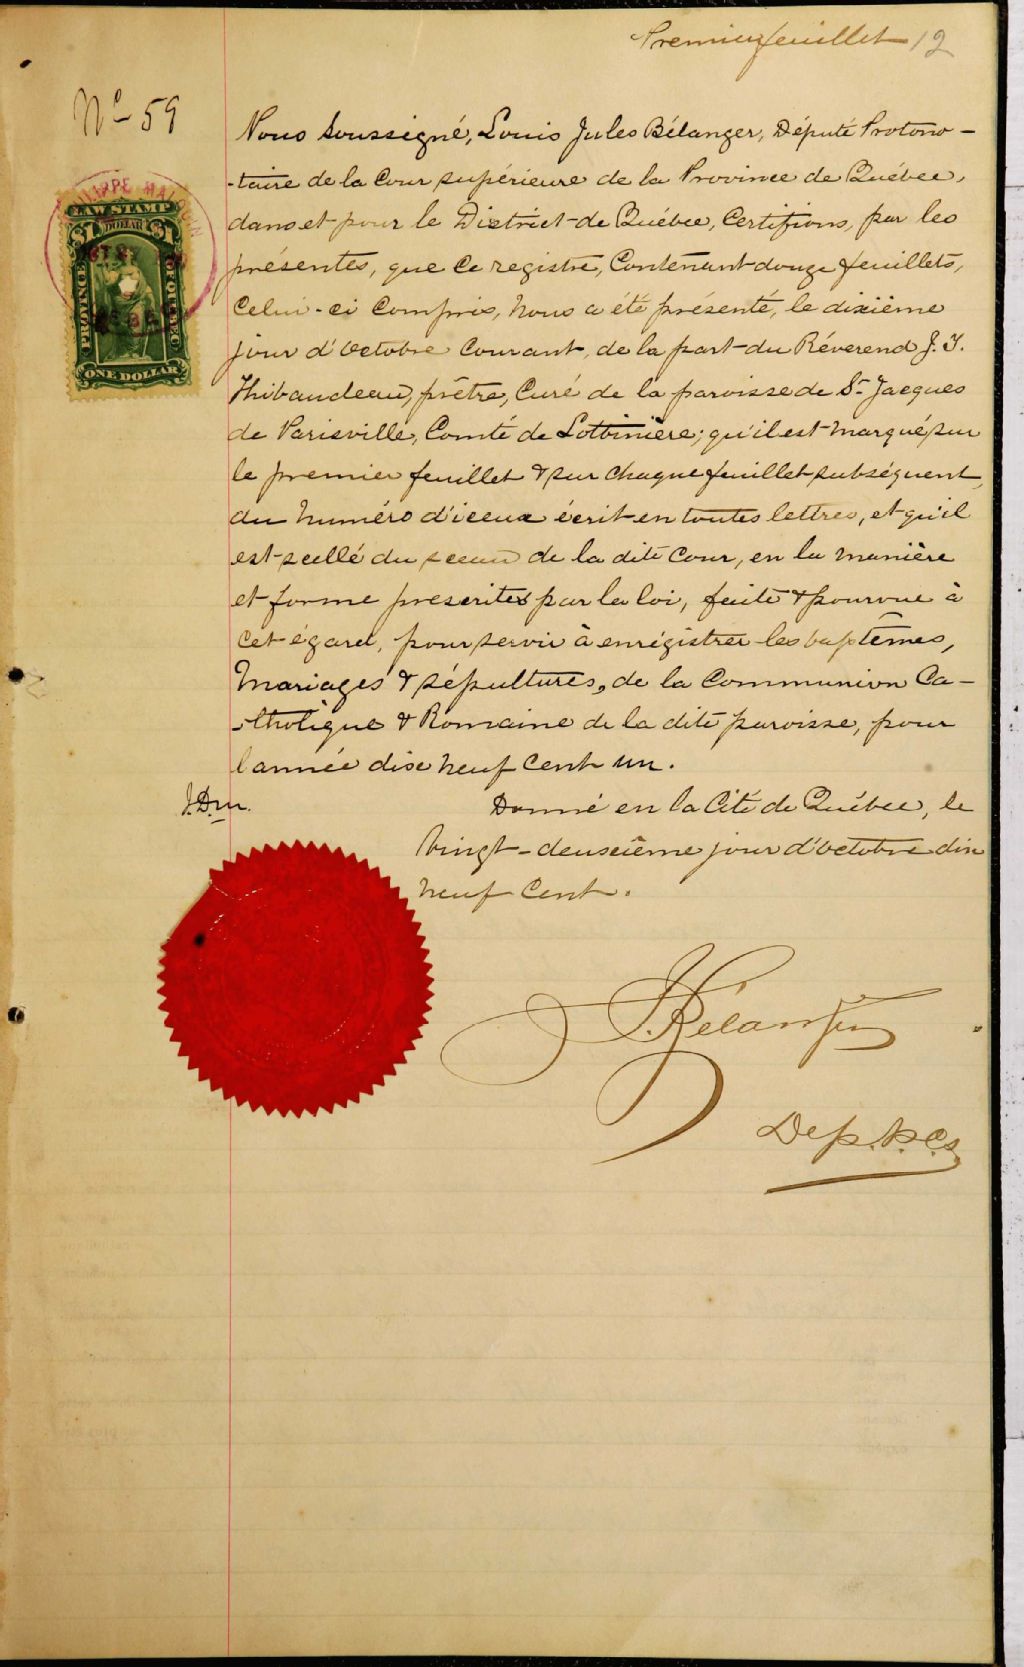 Premier feuillet 12
No 59
Nous soussigné, Louis Jules Bélanger, Député Protono-
-taire de la Cour supérieure de la Province de Québec,
dans et pour le District de Québec, Certifions, par les
présentes, que ce registre, Contenant douze feuillets,
Celui-ci Compris, Nous a été présenté, le dixième
jour d'Octobre Courant, de la part du Réverend J. T.
Thibaudeau, prêtre, Curé de la paroisse de St Jacques
de Parisville, Comté de Lotbinière; qu'il est Marqué sur
le premier feuillet & sur chaque feuillet subséquent,
du Numéro d'iceux écrit en toutes lettres, et qu'il
est scellé du sceau de la dite Cour, en la manière
et forme prescrites par la loi, faite & pourvue à
cet égard, pour servir à enrégistrer les baptêmes,
Mariages & sépultures, de la Communion Ca-
-tholique & Romaine de la dite paroisse, pour
l'année dix neuf Cent un.
J.D.m.
Donné en la Cité de Québec, le
vingt-deuxième jour d'octobre dix
neuf Cent.
LAW STAMP
$1 DOLLAR $1
PROVINCE
QUEBEC
ONE DOLLAR
J. Bélanger
Dep. P.C.S.